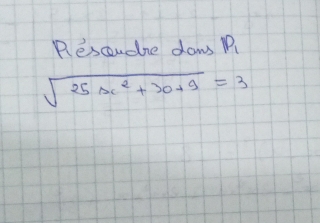 Résoudre dans ℝ
√(25x² + 30 + 9) = 3